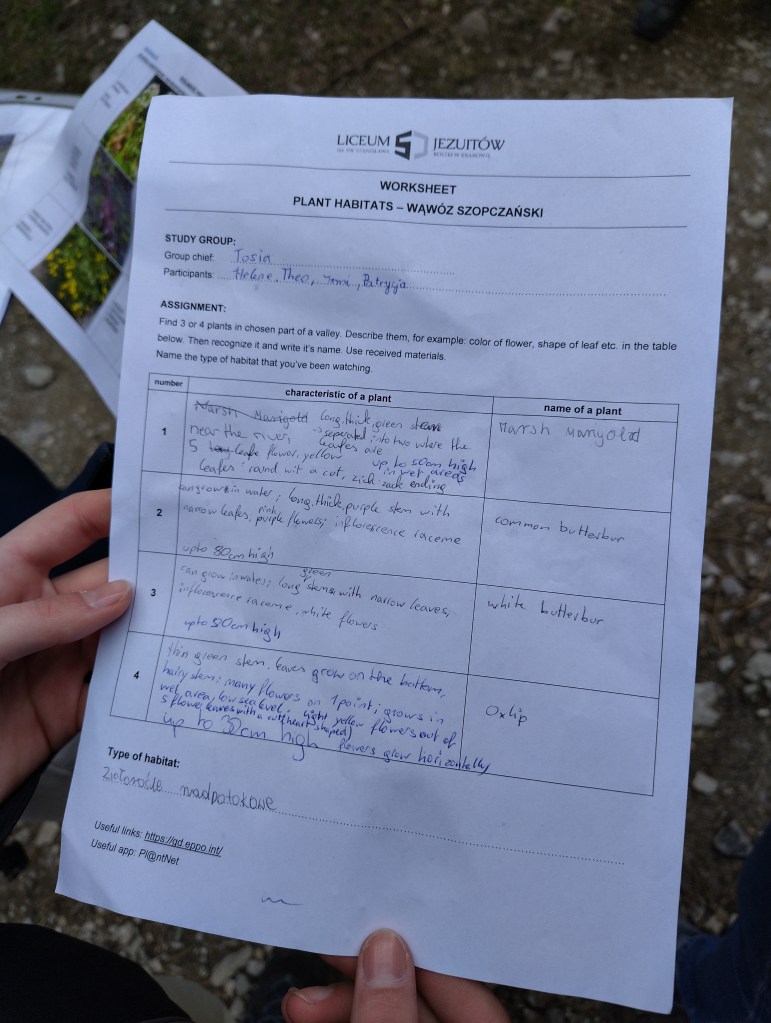 LICEUM JEZUITÓW
WORKSHEET
PLANT HABITATS – WĄWÓZ SZOPCZAŃSKI
STUDY GROUP:
Group chief: Tosia
Participants: Helene, Theo, , Patrycja
ASSIGNMENT:
Find 3 or 4 plants in chosen part of a valley. Describe them, for example: color of flower, shape of leaf etc. in the table
below. Then recognize it and write it's name. Use received materials.
Name the type of habitat that you've been watching.
number characteristic of a plant name of a plant
1
Marsh Marigold long, thick, green stem
near the river → seperated into two where the
leafes are
5 leafe flower, yellow up to 50cm high
in wet areas
leafes: round wit a cut, zick zack ending
Marsh Marigold
2
can grow in water; long, thick, purple stem with
narrow leafes, pink purple flowers; inflorescence raceme
up to 80cm high
common butterbur
3
can grow in water; long green stem with narrow leaves;
inflorescence raceme, white flowers
up to 50cm high
white butterbur
4
thin green stem, leaves grow on the bottom,
hairy stem; many flowers on 1 point; grows in
wet area, low sea level; light yellow flowers out of
5 flowe, leaves with a cut (heart shaped)
up to 30cm high flowers grow horizontally
Oxlip
Type of habitat:
Ziołorośla nadpotokowe
Useful links: https://gd.eppo.int/
Useful app: Pl@ntNet